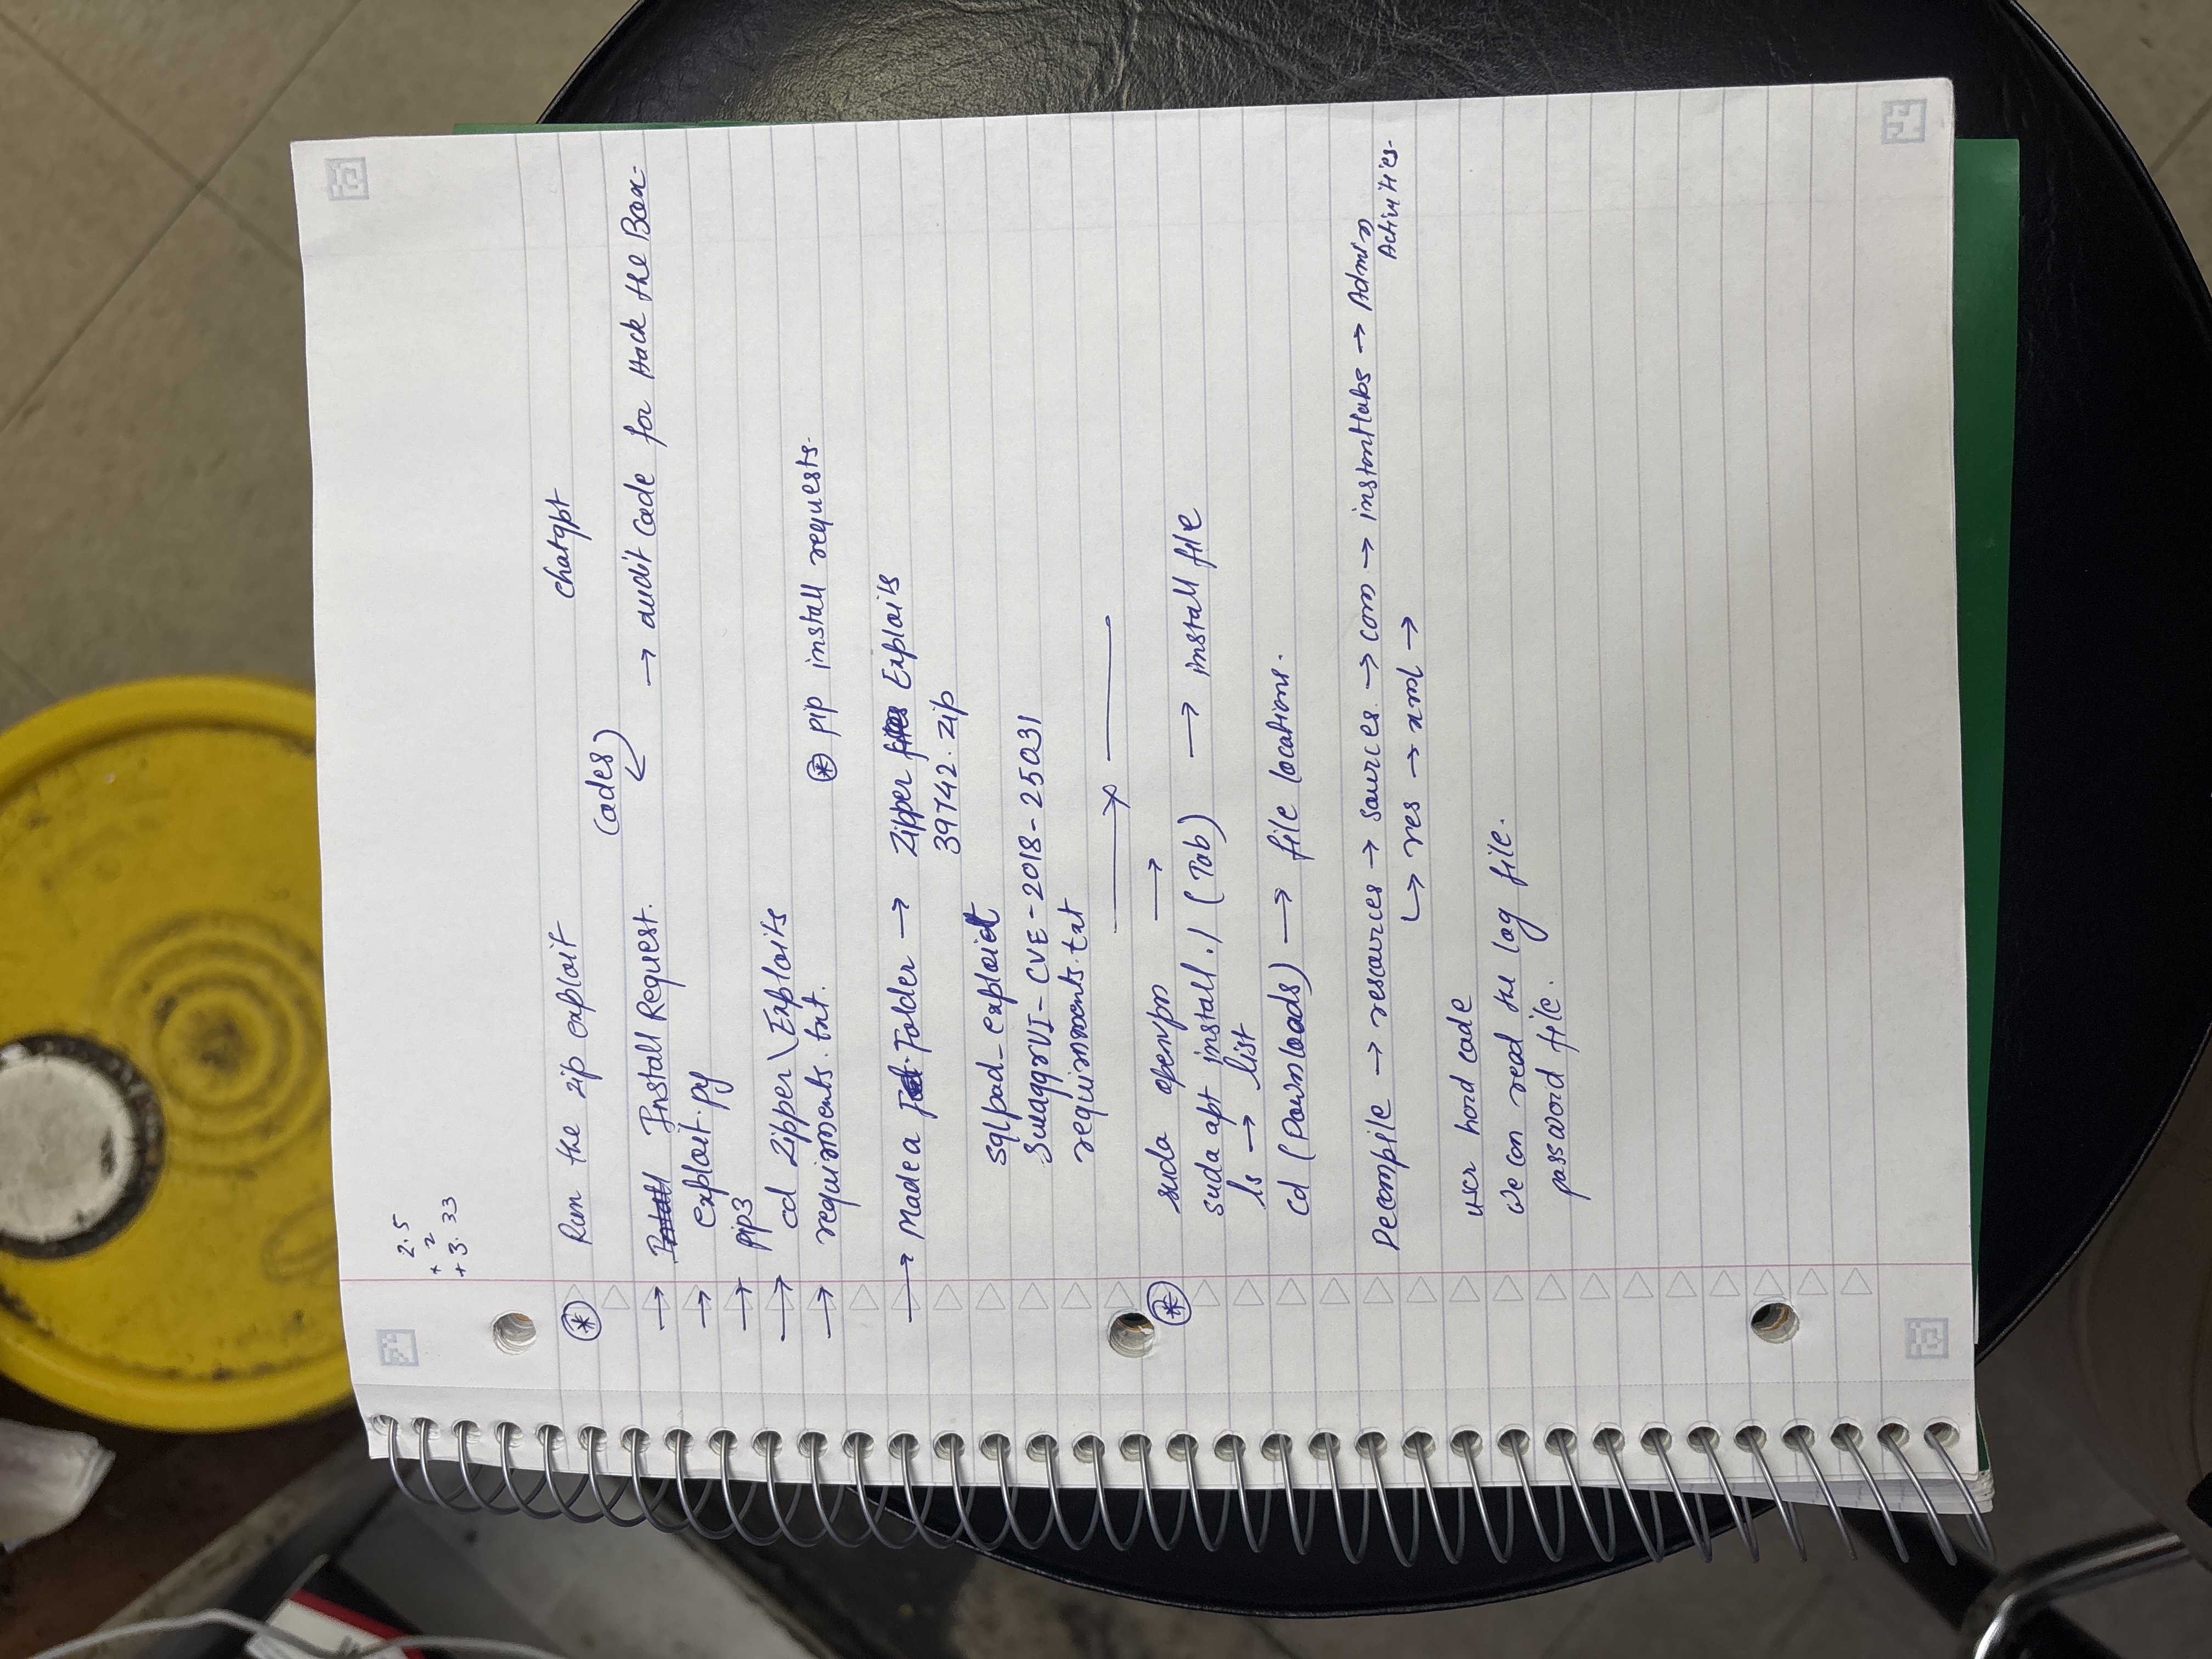 2.5
+ 2
+ 3.33
Run the zip exploit
chatgpt
Codes
Install Request.
→ audit code for Hack the Box-
→ exploit.py
→ pip3
→ cd Zipper\Exploits
→ requirments.txt.
⊛ pip install requests-
→ Made a Folder → Zipper Exploits
39742.zip
sqlpad_exploit
SwaggrUI-CVE-2018-25031
requirnments.txt
sudo openvpn →
sudo apt install ./ (Tab) → install file
ls → list
cd (Downloads) → file locations.
Decompile → resources → sources → com → instantlabs → Admin
Activities-
↳ res → xml →
user hord code
we can read the log file.
password file.